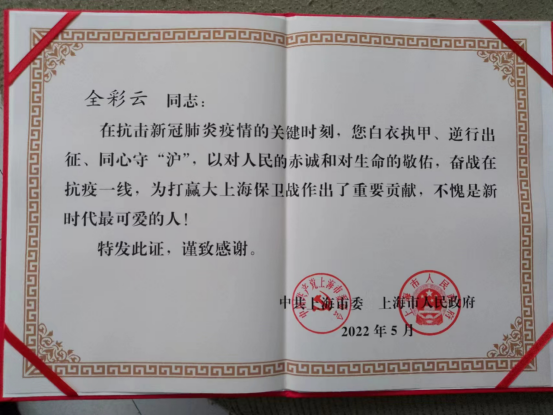 全彩云 同志：
在抗击新冠肺炎疫情的关键时刻，您白衣执甲、逆行出
征、同心守“沪”，以对人民的赤诚和对生命的敬佑，奋战在
抗疫一线，为打赢大上海保卫战作出了重要贡献，不愧是新
时代最可爱的人！
特发此证，谨致感谢。
中共上海市委 上海市人民政府
2022年5月
上海市人民政府